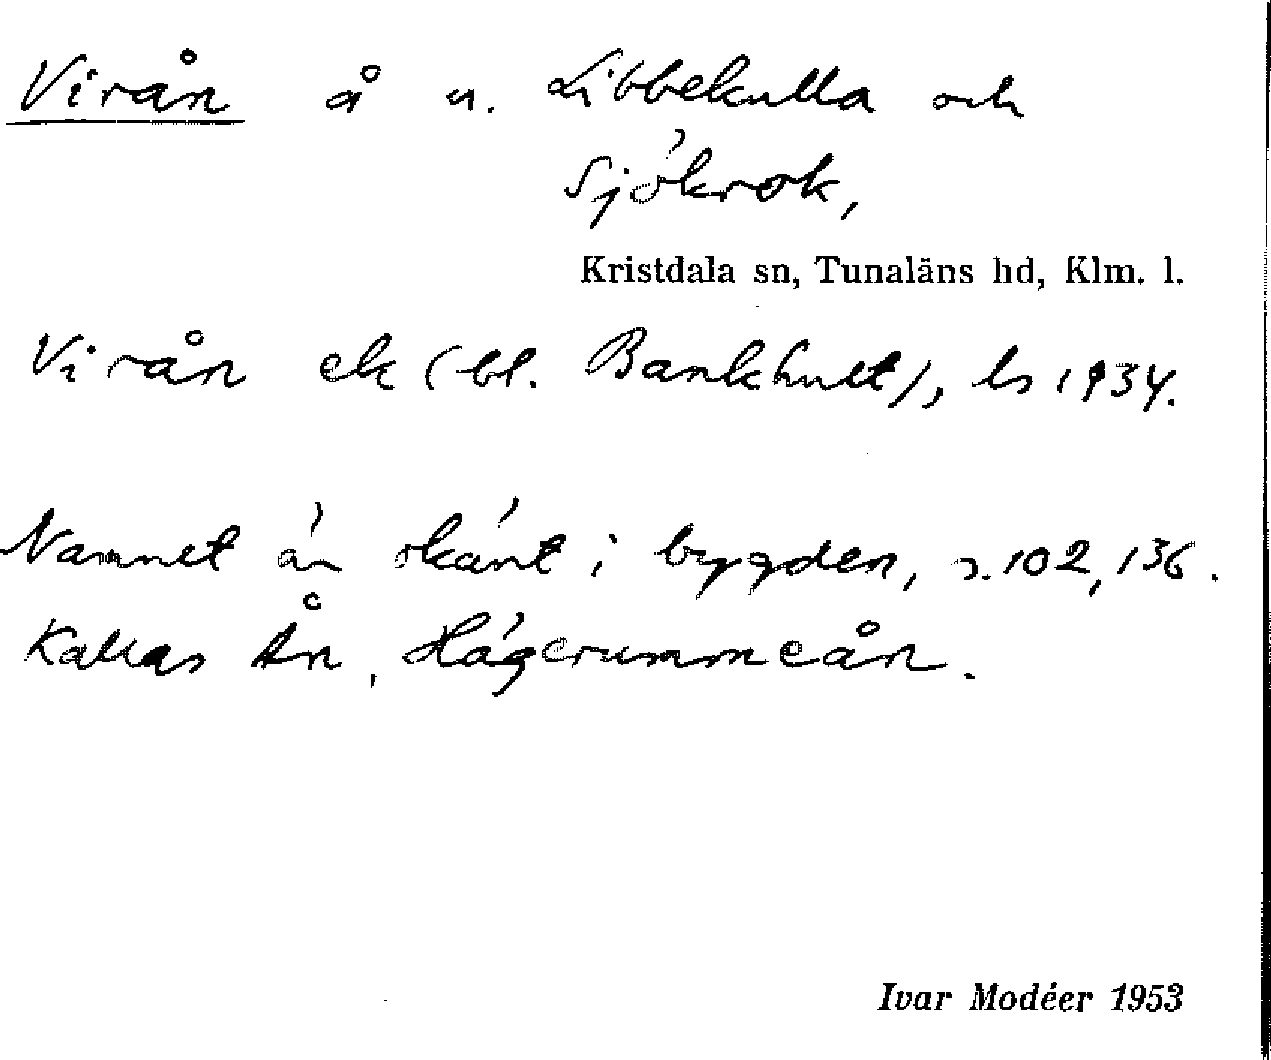 Virån å u. Libbekulla och
Sjökrok,
Kristdala sn, Tunaläns hd, Klm. l.
Virån ek (bl. Bankhult), ls 1934.
Namnet är okänt i bygden, s. 102, 136.
Kallas Ån, Hägerummeån.
Ivar Modéer 1953